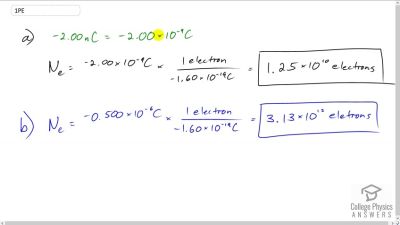 1PE
a) -2.00 nC = -2.00×10⁻⁹C
Nₑ = -2.00×10⁻⁹C × 1 electron / -1.60×10⁻¹⁹C = 1.25×10¹⁰ electrons
b) Nₑ = -0.500×10⁻⁶C × 1 electron / -1.60×10⁻¹⁹C = 3.13×10¹² eletrons
College Physics
ANSWERS